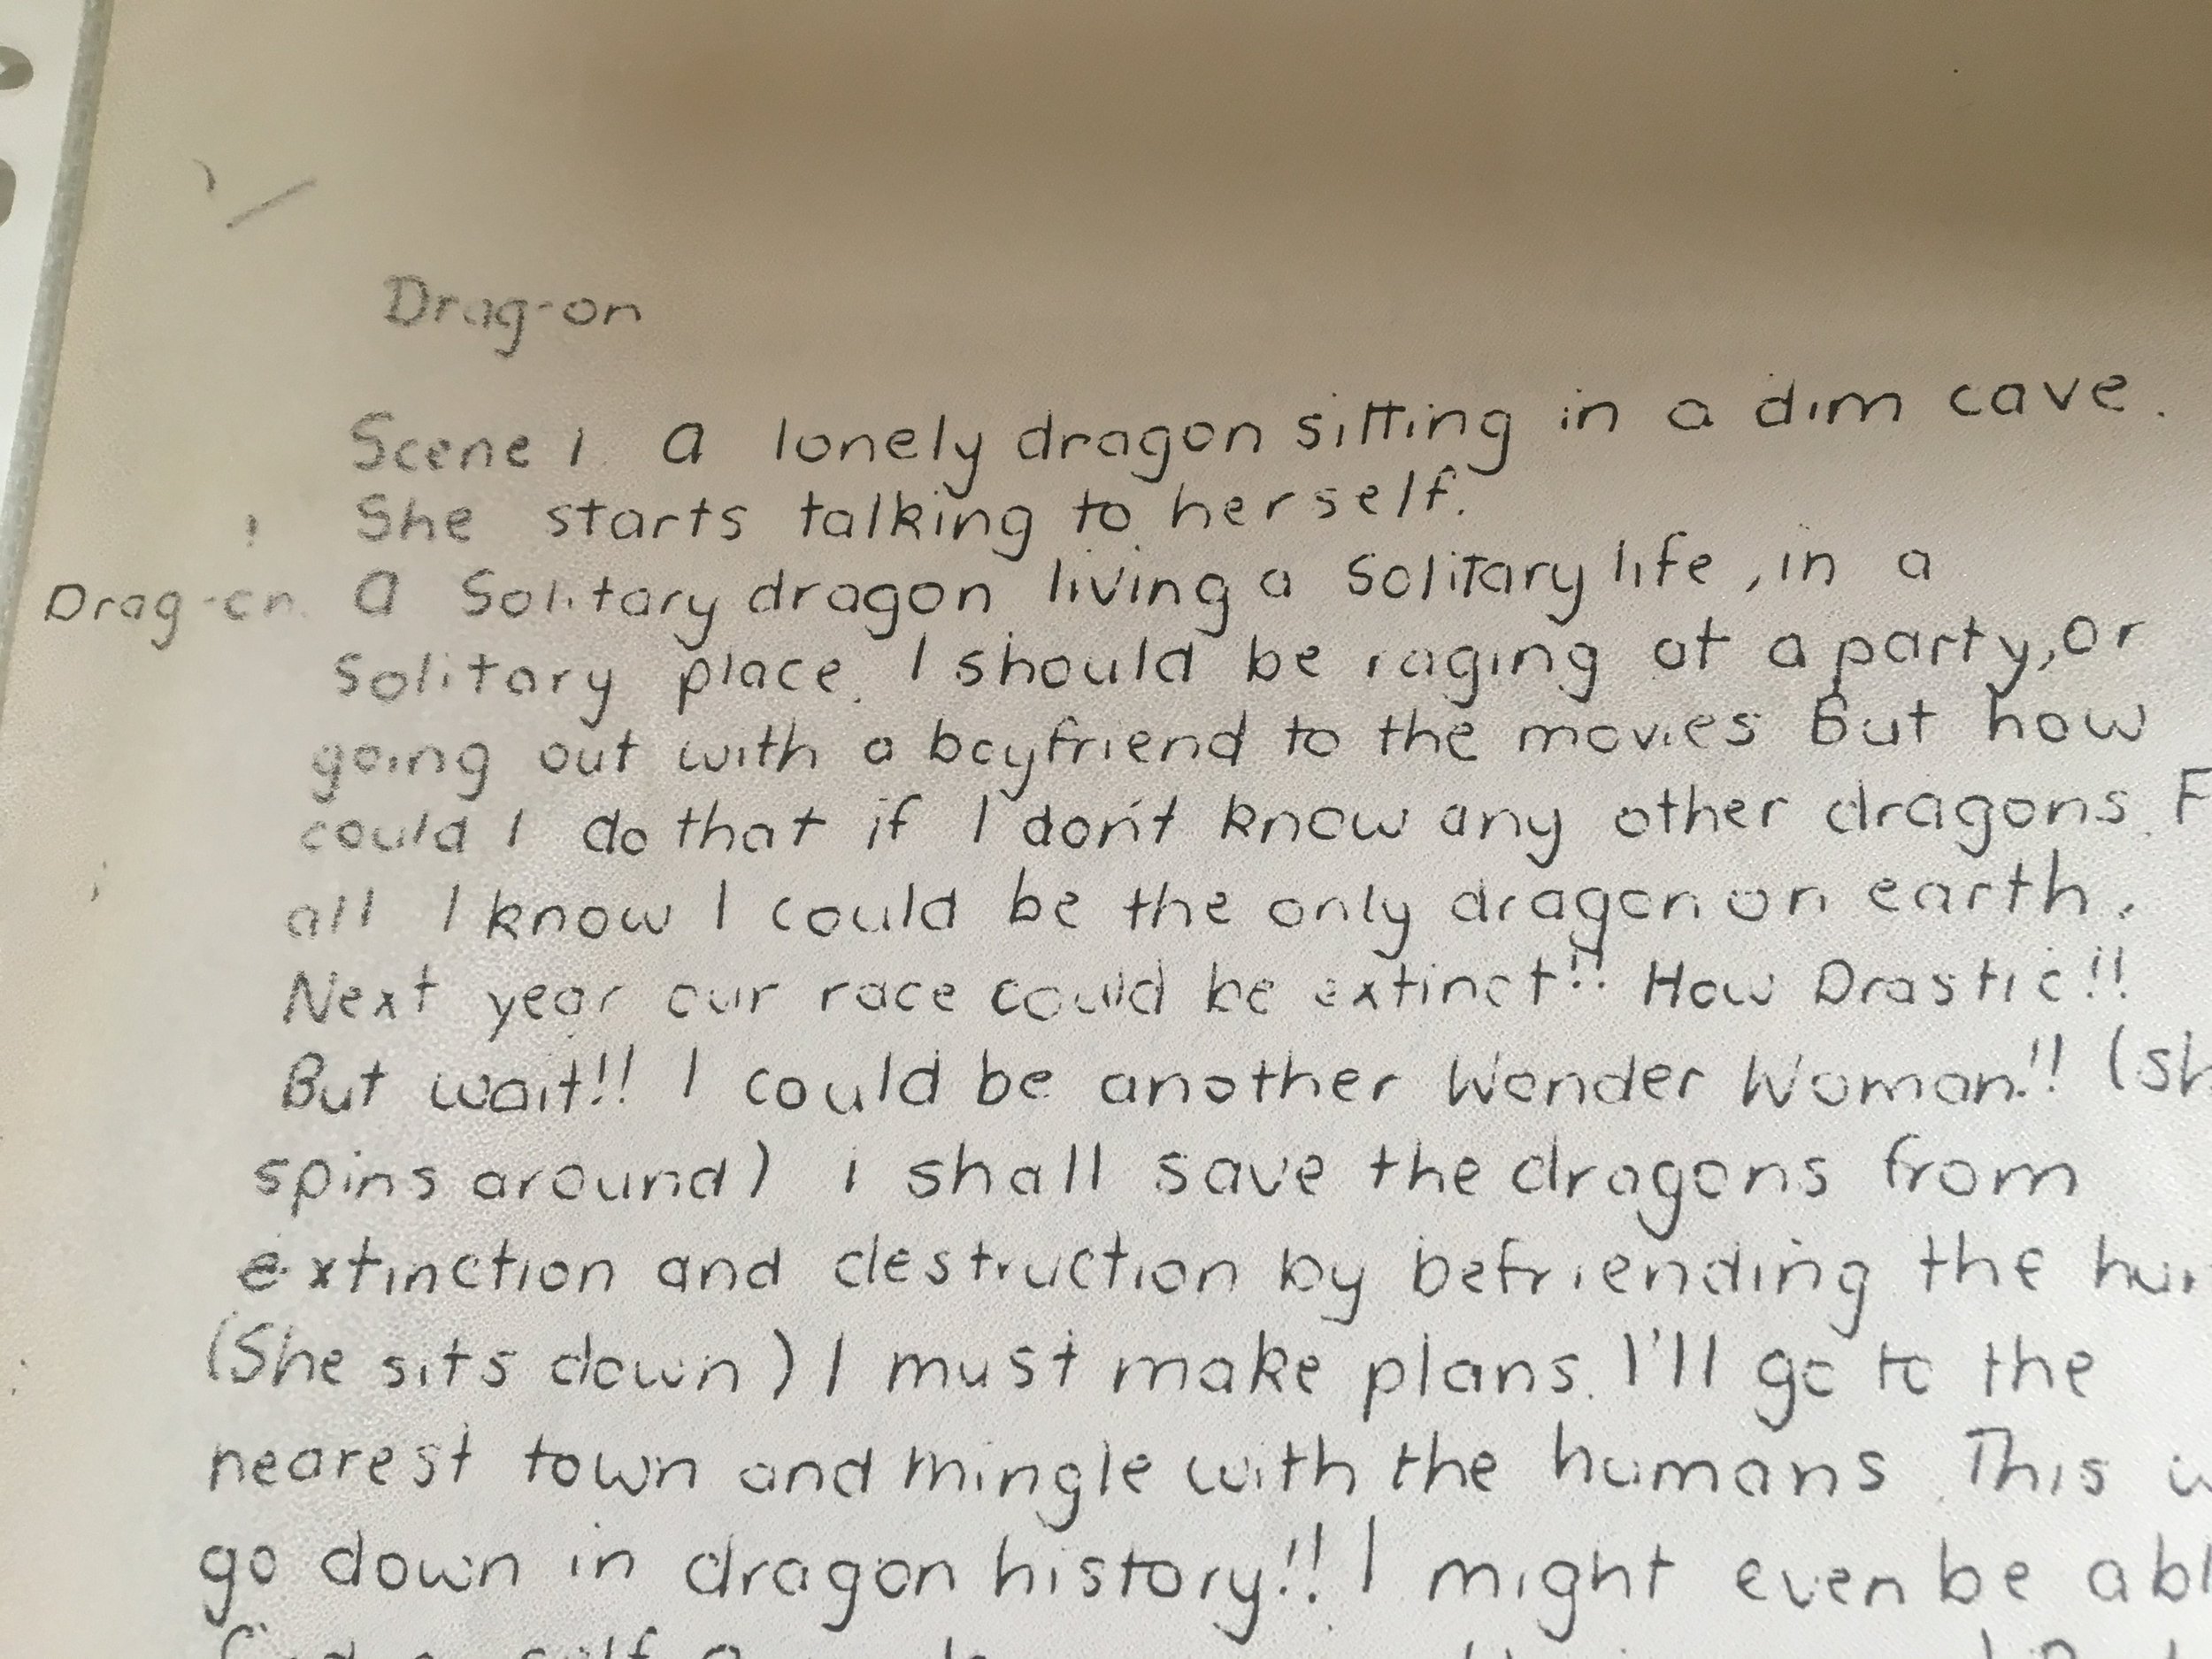 Drag-on
Scene 1. A lonely dragon sitting in a dim cave.
She starts talking to herself.
Drag-on. A Solitary dragon living a Solitary life, in a
Solitary place. I should be raging at a party, or
going out with a boyfriend to the movies But how
could I do that if I don't know any other dragons. F
all I know I could be the only dragon on earth.
Next year our race could be extinct!! How Drastic!!
But wait!! I could be another Wonder Woman!! (sh
spins around) i shall save the dragons from
extinction and destruction by befriending the hu
(She sits down) I must make plans. I'll go to the
nearest town and mingle with the humans. This w
go down in dragon history!! I might even be abl